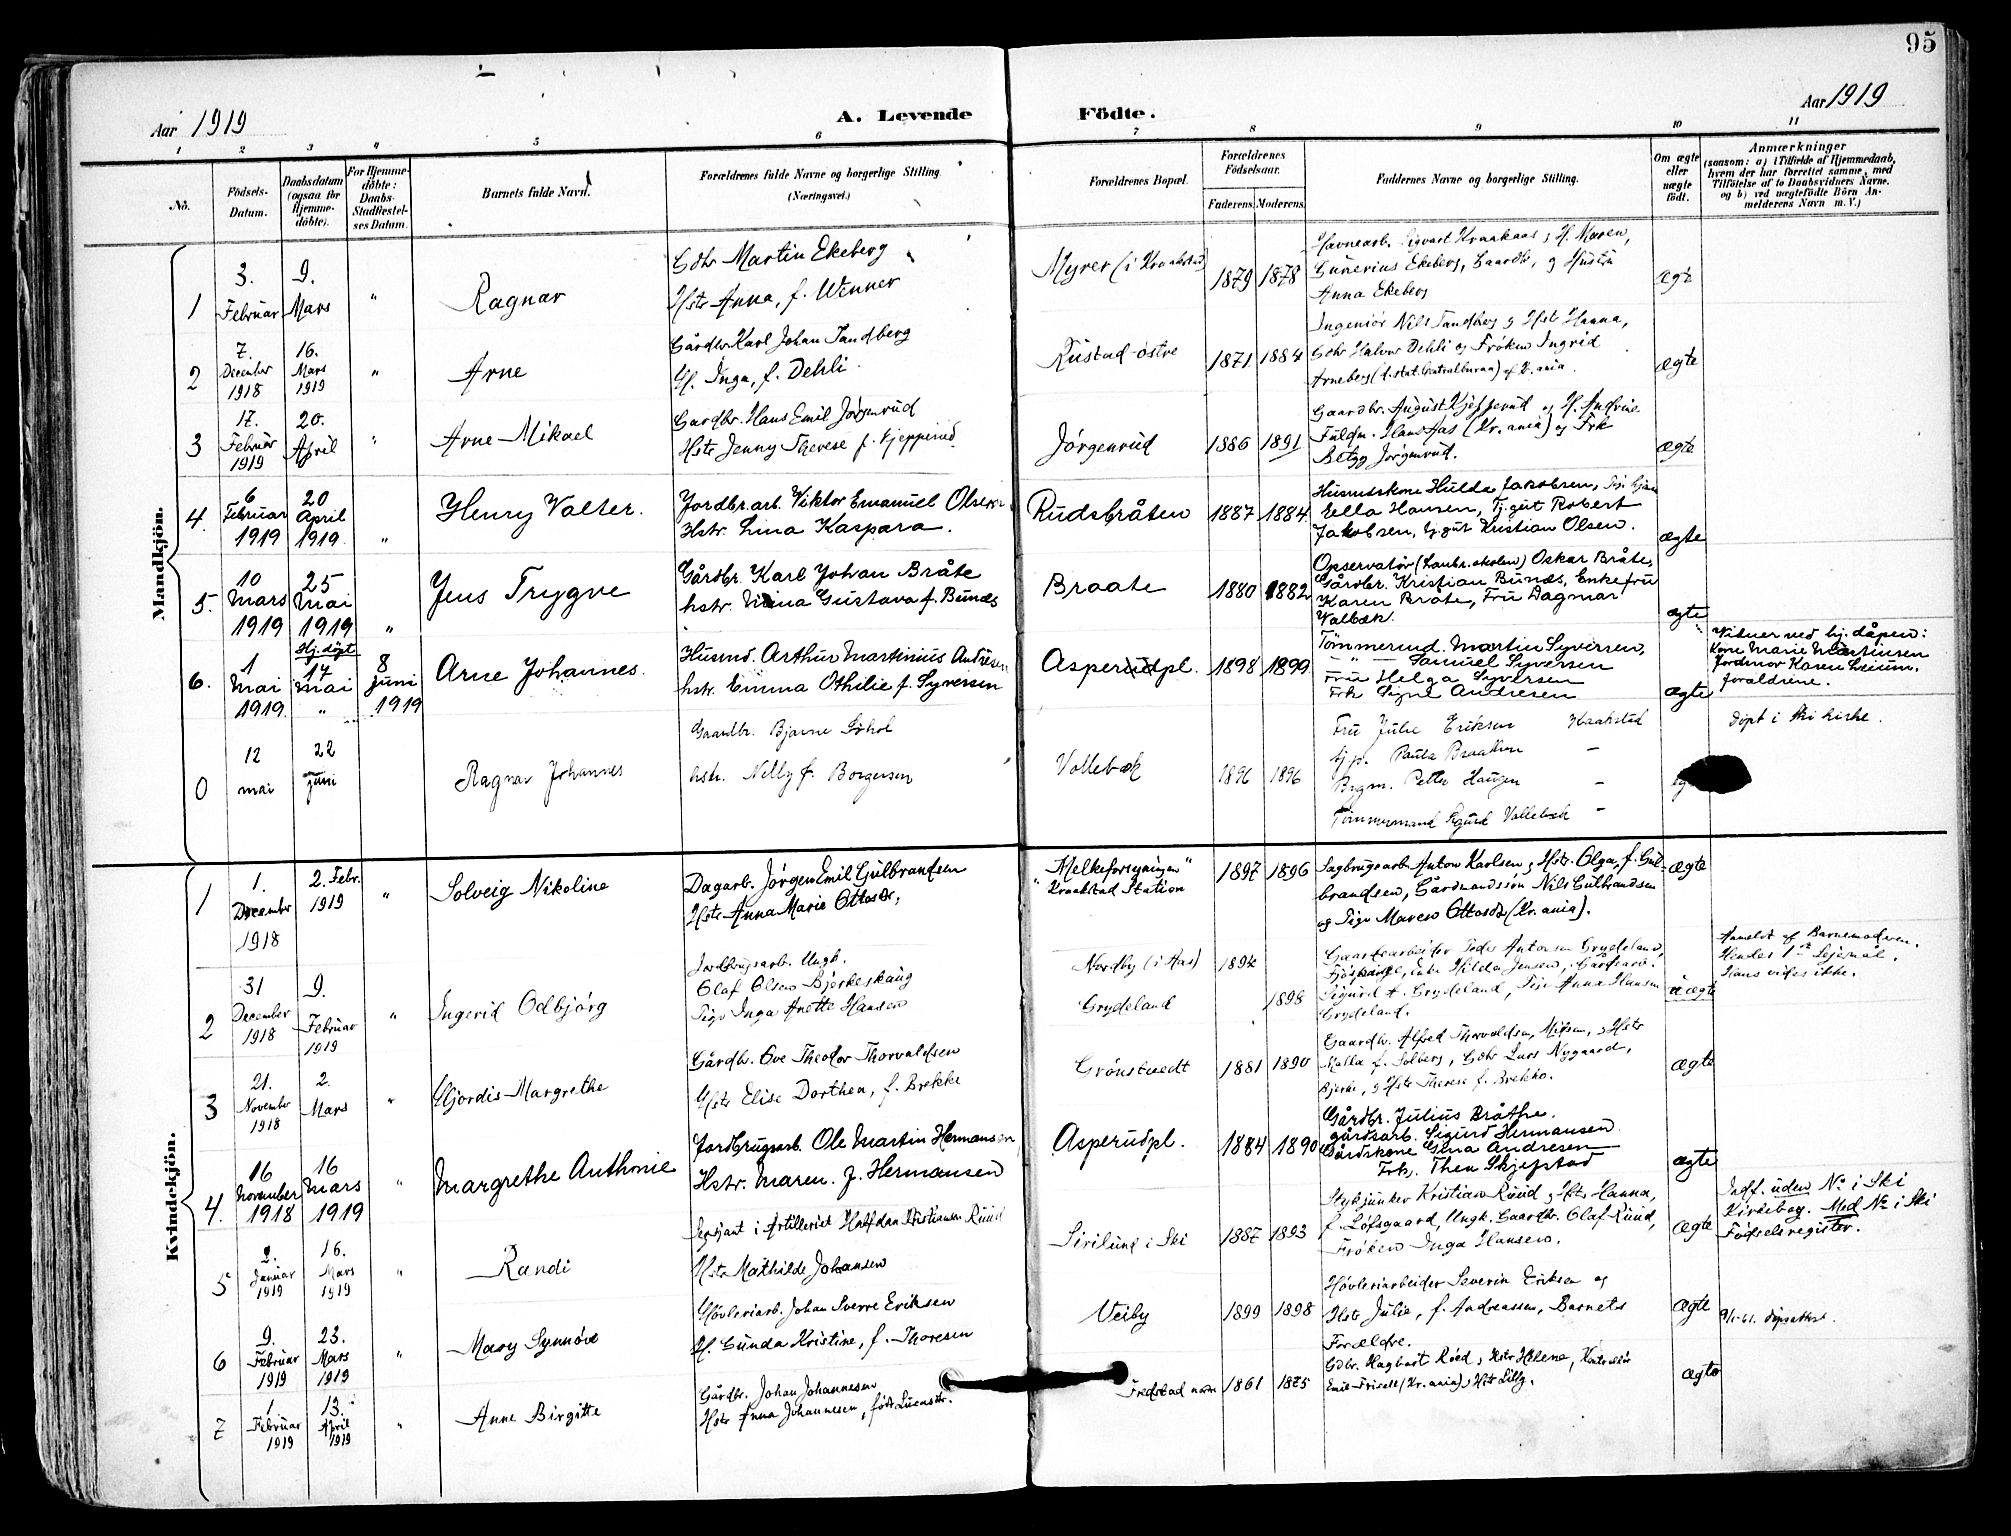 95
Aar 1919
A. Levende Födte.
Aar 1919
1 2 3 4 5 6 7 8 9 10 11
No.
Födsels-
Datum.
Daabsdatum
(ogsaa for
Hjemme-
döbte).
For Hjemme-
döbte:
Daabs-
Stadfæstel-
ses Datum.
Barnets fulde Navn.
Forældrenes fulde Navne og borgerlige Stilling
(Næringsvei.)
Forældrenes Bopæl.
Forældrenes
Födselsaar.
Faderens. Moderens.
Faddernes Navne og borgerlige Stilling.
Om ægte
eller
uægte
födt.
Anmærkninger
(saasom: a) i Tilfælde af Hjemmedaab,
hvem der har forrettet samme, med
Tilföielse af to Daabsvidners Navne,
og b) ved uægtefödte Börn An-
melderens Navn m. V.)
Mandkjön.
1
3.
Februar
9.
Mars
"
Ragnar
Gdbr Martin Ekeberg
Hstr Anna, f. Wenner
Myrer (i Kraakstad)
1879 1878
Havnearb. Sigvart Kraakaas, H. Maren,
Gunerius Ekeberg, Gaardb., og Hustru
Anna Ekeberg
ægte
2
7.
December
1918
16.
Mars
1919
"
Arne
Gårdbr Karl Johan Sandberg
H. Inga, f. Dehli.
Rustad østre
1871 1884
Ingeniør Nils Sandberg og Hstr Hanna,
Gdbr Halvor Dehli og Frøken Ingrid
Arneberg (d. stat. Centralbureau) af Kr.ania.
ægte
3
17.
Februar
1919
20.
April
"
Arne Mikael
Gardbr. Hans Emil Jørgenrud
Hstr Jenny Therese f. Kjepperud
Jørgenrud
1886 1891
Gaardbr. August Kjepperud og H. Andrine
Fuldm. Hans Aas (Kr.ania) og Frk
Betzy Jørgenrud.
ægte
4.
6
Februar
1919
20
April
1919
"
Henry Valter.
Jordbr.arb. Viktor Emanuel Olsen
Hstr. Lina Kaspara.
Rudsbråten
1887 1884
Husmdskone Hulda Jakobsen,
Ella Hansen, Tj.gut Robert
Jakobsen, Tj.gut Kristian Olsen.
ægte
5.
10
Mars
1919
25
Mai
1919
"
Jens Trygve
Gårdbr. Karl Johan Bråte
hstr. Nina Gustava f. Bunæs
Braate
1880 1882
Opservatør (Lanbr.skolen) Oskar Bråte,
Gårdbr. Kristian Bunæs, Enkefru
Karen Bråte, Fru Dagmar
Valbæk.
ægte
6.
1
Mai
1919
Hj. døpt
17
Mai
"
8
Juni
1919
Arne Johannes.
Husmd. Arthur Martinius Andresen
hstr. Emma Othilie f. Syversen
Asperudpl.
1898 1899
Tømmermd. Martin Syversen,
— " — Samuel Syversen
Fru Helga Syversen
Frk Signe Andresen
ægte
Vidner ved hj. dåpen:
Kone Marie Martinsen
Jordmor Karen Leium.
foraldrene.
0
12
mai
22
juni
Ragnar Johannes
Gaardbr. Bjarne Søhol
hstr. Nelly f. Borgersen
Vollebæk
1896 1896
Fru Julie Eriksen Kraakstad
Paula Braathen —
Brgm. Petter Haugen —
Tømmermand Sigurd Vollebæk —
Døpt i Ski kirke.
Kvindekjön.
1
1.
December
1918
2. Febr.
1919
"
Solveig Nikoline
Dagarb. Jørgen Emil Gulbrandsen
Hstr Anna Marie Ottosdr,
"Melkeforsyningen"
Kraakstad Station
1897 1896
Sagbrugsarb Anton Karlsen, Hstr. Olga, f. Gul-
brandsen, Gårdmandssøn Nils Gulbrandsen
og Pige Maren Ottosdr (Kr.ania).
ægte
2
31
December
1918
9.
Februar
1919
"
Ingerid Odbjørg
Jordbrugsarb. Ungk.
Olaf Olsen Bjerkeskaug
Pige Inga Anette Hansen
Nordby (i Aas)
Grydeland
1894
1898
Gaardsarbeider Peder Antonsen Grydeland,
Hilda Jensen, Gårdsarb.
Sigurd A. Grydeland, Pige Anna Hansen
Grydeland.
uægte
Anmeldt af Barnemoderen.
Hendes 1ste Lejemål.
Hans vides ikke.
3
21.
November
1918
2.
Mars
"
Hjordis Margrethe
Gårdbr. Ove Theodor Thorvaldsen
Hstr Elise Dorthea, f. Brekke
Grönstvedt
1881 1890
Gaardbr. Alfred Thorvaldsen, , Hstr
Kalla f. Solberg, Gdbr Lars Nygaard,
Bjerke, Hstr Therese f. Brekke.
ægte
4.
16
November
1918
16
Mars
1919
"
Margrethe Anthonie
Jordbrugsarb. Ole Martin Hermansen
Hstr. Maren. f. Hermansen
Asperudpl.
1884 1890
Gårdbr. Julius Bråthe.
gårdsarb. Sigurd Hermansen.
Gårdskone Gina Andresen
Frk. Thea Skjefstad
ægte
5
2.
Januar
1919
16.
Mars
1919
"
Randi
Sersjant i Artilleriet Halfdan Kristiansen Ruud
Hstr Mathilde Johansen
Sirilund i Ski
1887 1893
Stykjunker Kristian Ruud, Hstr Hanna,
f. Løfsgaard, Ungk. Gaardbr. Olaf Ruud,
Frøken Inga Hansen.
ægte
Indf. uden No i Ski
Kirkebog. Med No i Ski
Fødselsregister.
6
9.
Februar
1919
23.
Mars
1919
"
Mary Synnöve
Høvleriarb. Johan Sverre Eriksen
H. Gunda Kristine, f. Thoresen
Veiby
1899 1898
Høvleriarbeider Severin Eriksen og
Hstr Julie, f. Andreassen, Barnets
Forældre.
ægte
dåpsattest.
7
1.
Februar
1919
13.
April
1919
"
Anne Birgitte
Gårdbr. Johan Johannesen
Hstr Anna Johannesen, født Lucasdtr.
Fredstad
1861 1875
Gdbr. Hagbart Röed, Hstr Helene, Kontrollør
Emil (Kr.ania), Hstr Lilly.
ægte